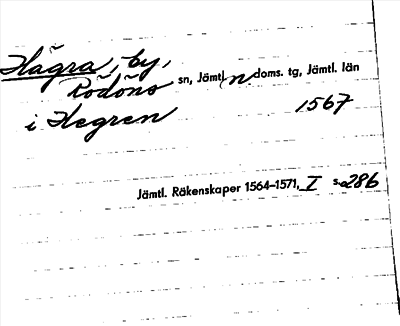 Hägra, by,
Rödöns sn, Jämtl. n doms. tg, Jämtl. län
i Hegren 1567
Jämtl. Räkenskaper 1564–1571, I s. 286